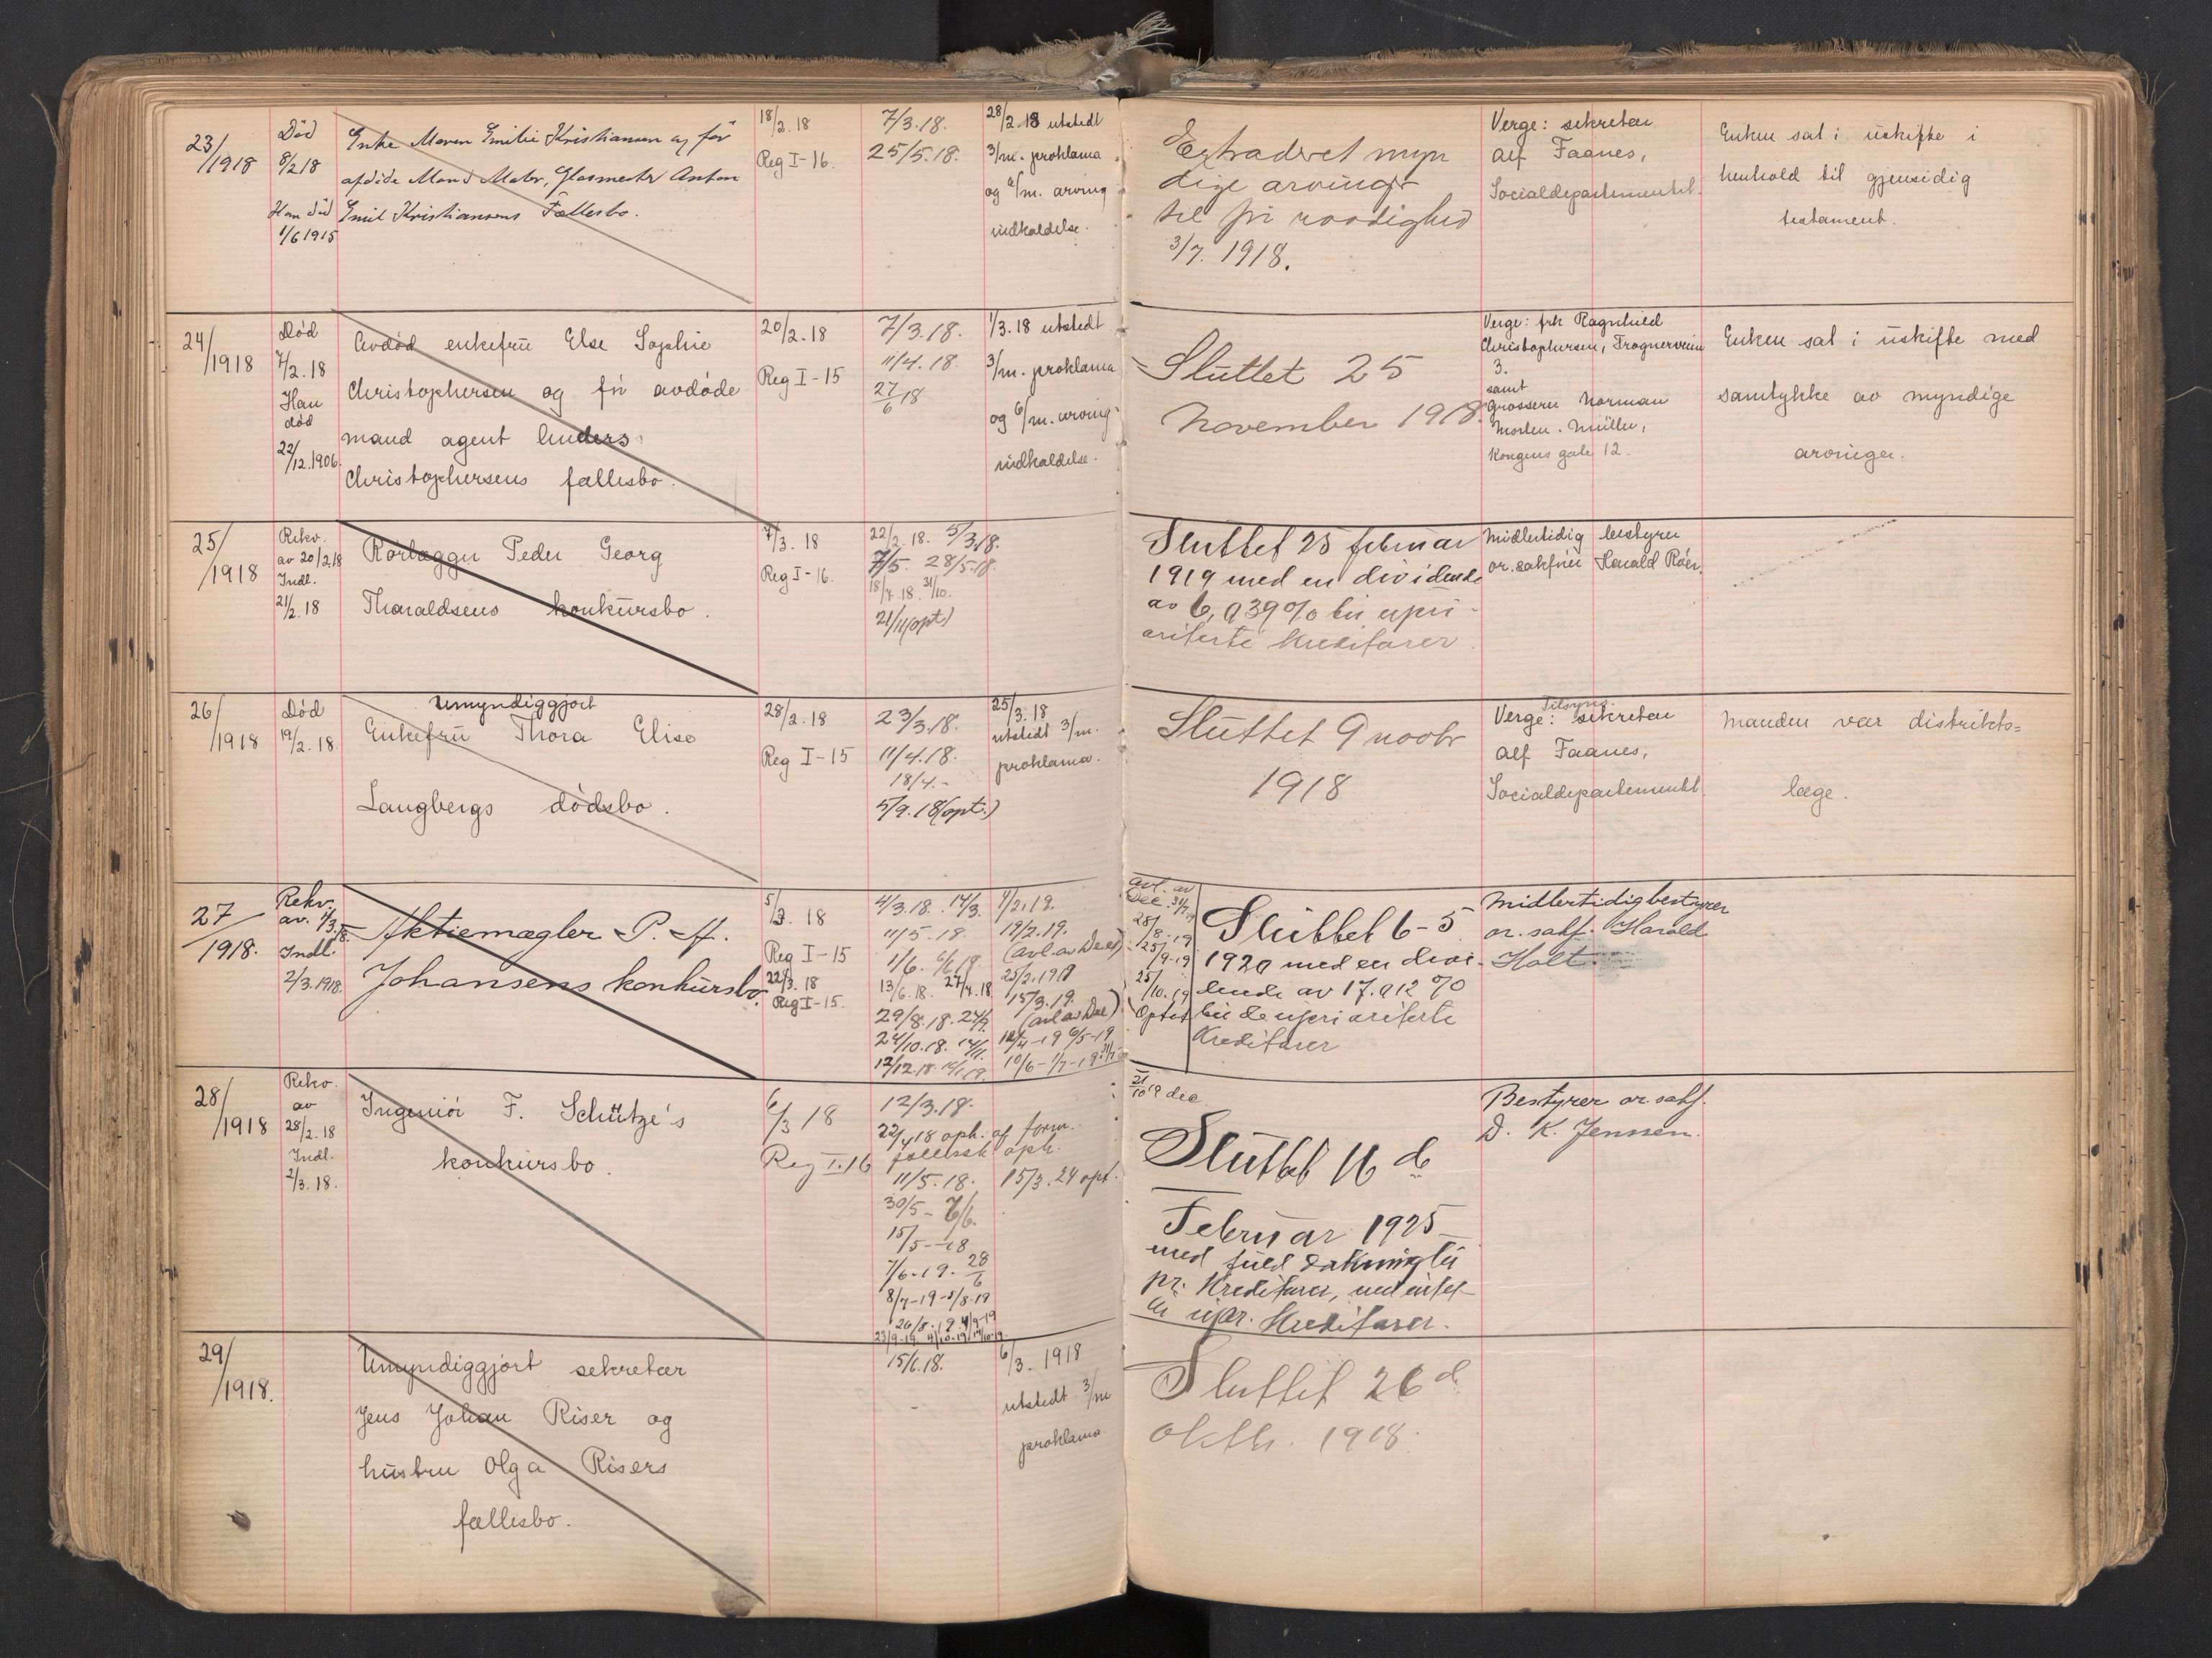 23/1918
Død
8/2 18
Han død
1/6 1915
Enke Maren Emilie Kristiansen og før
afdøde Mand Maler, Glasmester Anton
Emil Kristiansens Fællesbo.
18/2.18
Reg I-16.
7/3.18.
25/5.18.
28/2.18 utstedt
3/m. proklama
og 6/m. arving
indkaldelse.
Extraderet myn
dige arvinger
til fri raadighed
3/7. 1918.
Verge: sekretær
Alf Faanes,
Socialdepartementet.
Enken sat i uskifte i
henhold til gjensidig
testament.
24/1918
Død
7/2.18
Han
død
22/12.1906.
Avdød enkefru Else Sophie
Christophersen og før avdøde
mand agent Anders
Christophersens fællesbo.
20/2.18
Reg I-15
7/3.18.
11/4.18.
27/6 18
1/3.18 utstedt
3/m. proklama
og 6/m. arving-
indkaldelse.
Sluttet 25
November 1918.
Verge: frk Ragnhild
Christophersen, Frognerveien
3.
samt
Grosserer Norman
Morten-Müller,
Kongens gate 12.
Enken sat i uskifte med
samtykke av myndige
arvinger.
25/1918
Rekv.
av 20/2 18
Indl.
21/2.18
Rørlægger Peder Georg
Tharaldsens konkursbo.
7/3.18
Reg I-16.
22/2.18. 5/3.18.
7/5. 28/5.18.
18/7.18. 31/10.
21/11(opt)
Sluttet 25 februar
1919 med en dividende
av 6,039% til upri-
oriterte kreditorer.
Midlertidig bestyrer
or.sakfører Harald Röer.
26/1918
Død
19/2.18.
Umyndiggjort
Enkefru Thora Elise
Langbergs dødsbo.
28/2.18
Reg I-15
23/3.18.
11/4.18.
18/4.-
5/9.18(opt.)
25/3.18
utstedt 3/m.
proklama.
Sluttet 9 novbr
1918
Tilsyns
Verge: sekretær
Alf Faanes,
Socialdepartementet
Manden var distrikts=
læge.
27/1918.
Rekv.
av. 1/3.18.
Indl.
2/3.1918.
Aktiemægler P. A.
Johansens konkursbo.
5/3.18
Reg I-15
22/3.18
Reg I-15.
4/3.18. 14/3.
11/5.18
13/6.18.
29/8.18.
24/10.18.
12/12.18.
19/2.19.
15/3.19.
28/8-19
25/9-19
25/10.19
Optat
Sluttet 6-5
1920 med en divi-
dende av 17.012%
til de uprioriterte
Kreditorer
Midlertidig bestyrer
or. sakf. Harald
Holt.
28/1918
Rekv.
av
28/2.18
Indl.
2/3.18.
Ingeniør F. Schütze's
konkursbo.
6/3 18
Reg I.16
12/3.18.
22/4 18 oph. af form.
fællessk oph.
11/5.18.
30/5- 6/6.
15/5--18
7/6-19. 28/6
8/7-19-5/8-19
26/8-19. 4/9-19
23/9-19. 4/10-19. 14/10-19.
15/3.24 opt.
21/10 19 dec.
Sluttet 16 de
Februar 1925
med fuld dækning til
pr. Kreditorer, med intet
til upr. Kreditorer.
Bestyrer or. sakf.
D. K. Jensen.
29/1918.
Umyndiggjort sekretær
Jens Johan Riser og
hustru Olga Risers
fællesbo.
15/6.18.
6/3.1918
utstedt 3/m
proklama.
Sluttet 26 d.
oktbr. 1918.